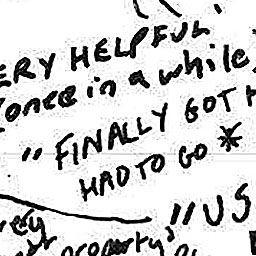 ERY HELPFUL.
(once in a while)
"FINALLY GOT H
HAD TO GO *
"US
property?